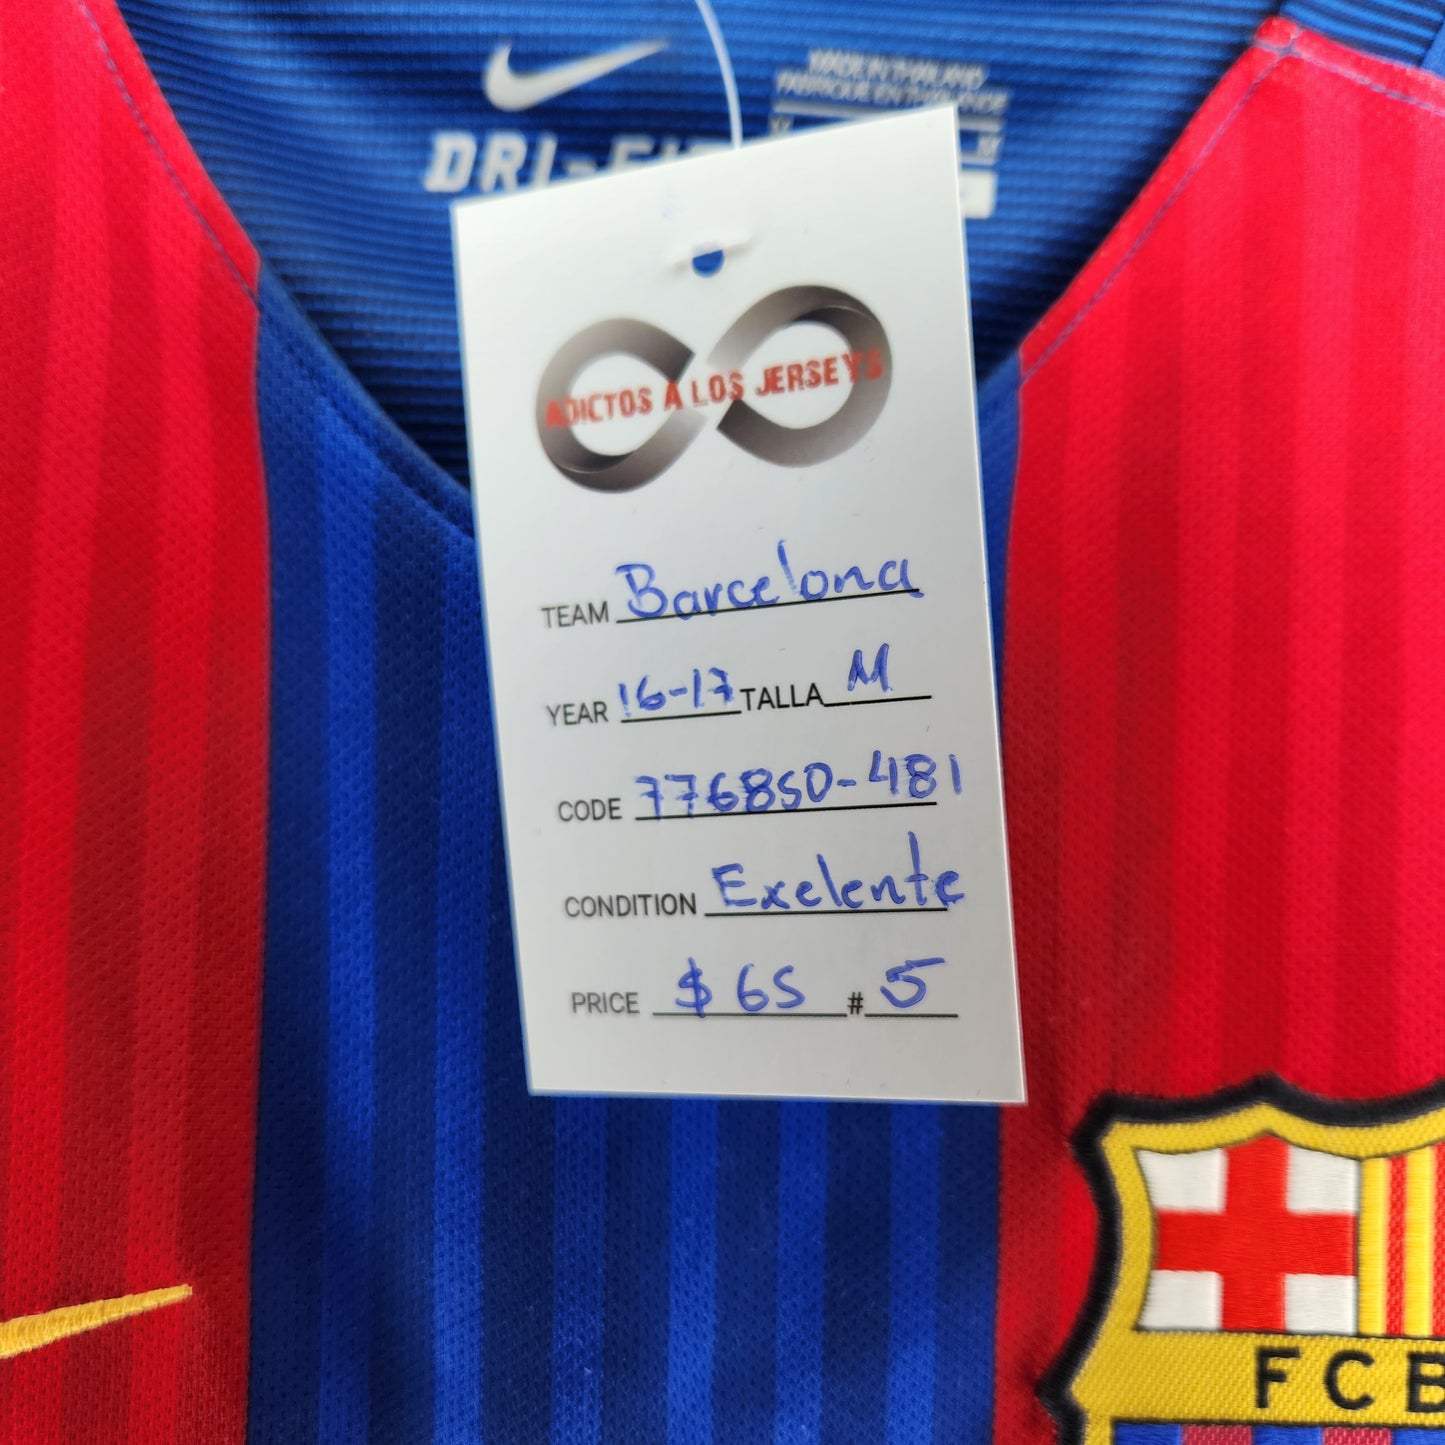 MADE IN THAILAND
FABRIQUE EN THAILANDE
DRI-FIT
ADICTOS A LOS JERSEYS
TEAM Barcelona
YEAR 16-17 TALLA M
CODE 776850-481
CONDITION Exelente
PRICE $65 # 5
FCB